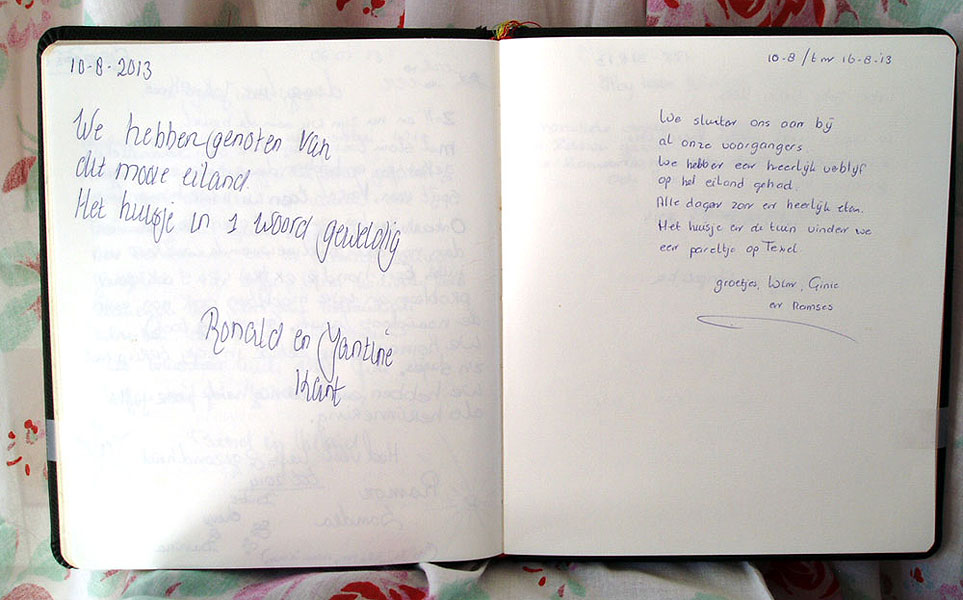 10-8-2013
We hebben genoten van
dit mooie eiland.
Het huisje in 1 woord geweldig
Ronald en Jantine
Kant
10-8 / t m 16-8-'13
We sluiten ons aan bij
al onze voorgangers.
We hebben een heerlijk verblijf
op het eiland gehad.
Alle dagen zon en heerlijk eten.
Het huisje en de tuin vinden we
een pareltje op Texel.
groetjes, Wim, Ginie
en Ramses